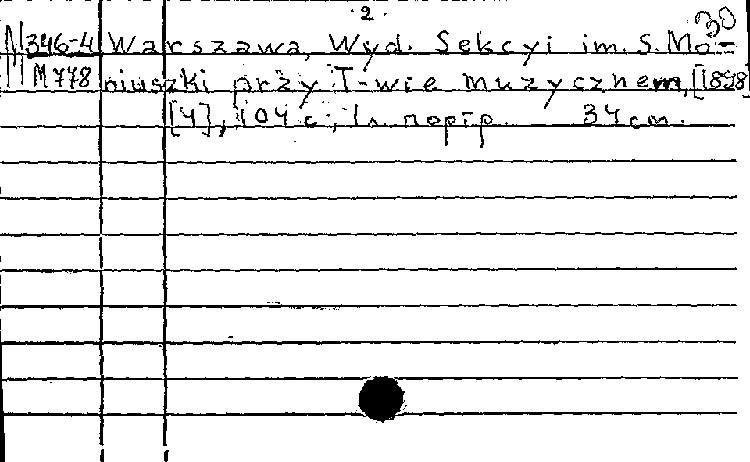 ·2·
30
N 346-4 Warszawa, Wyd. Sekcyi im. S. Mo=
M 778 niuszki przy T-wie muzycznem, [1898]
[4], 104 с., 1 л. портр. 34 cm.